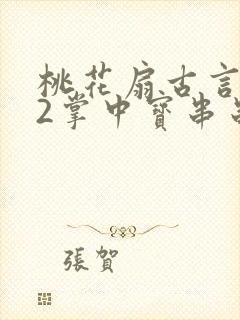 桃花扇古言
2掌中寶串
張賀